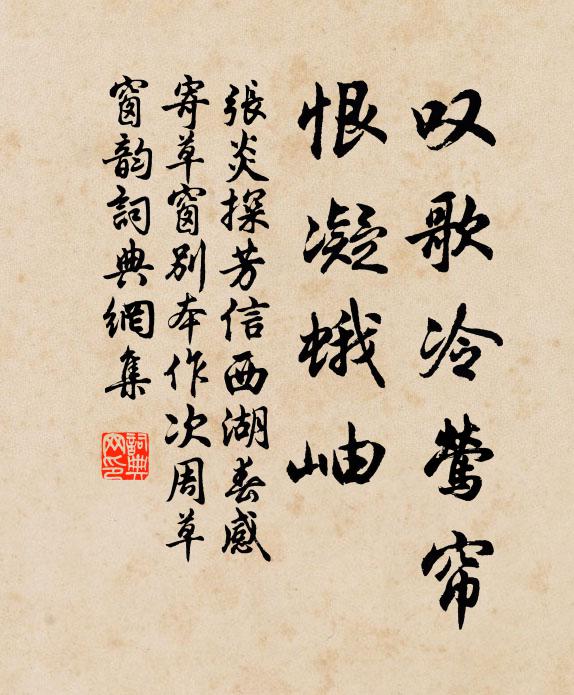 叹歌冷莺帘
恨凝蛾岫
張炎探芳信西湖春感
寄草窗別本作次周草
窗韵詞典網集
詞典网印